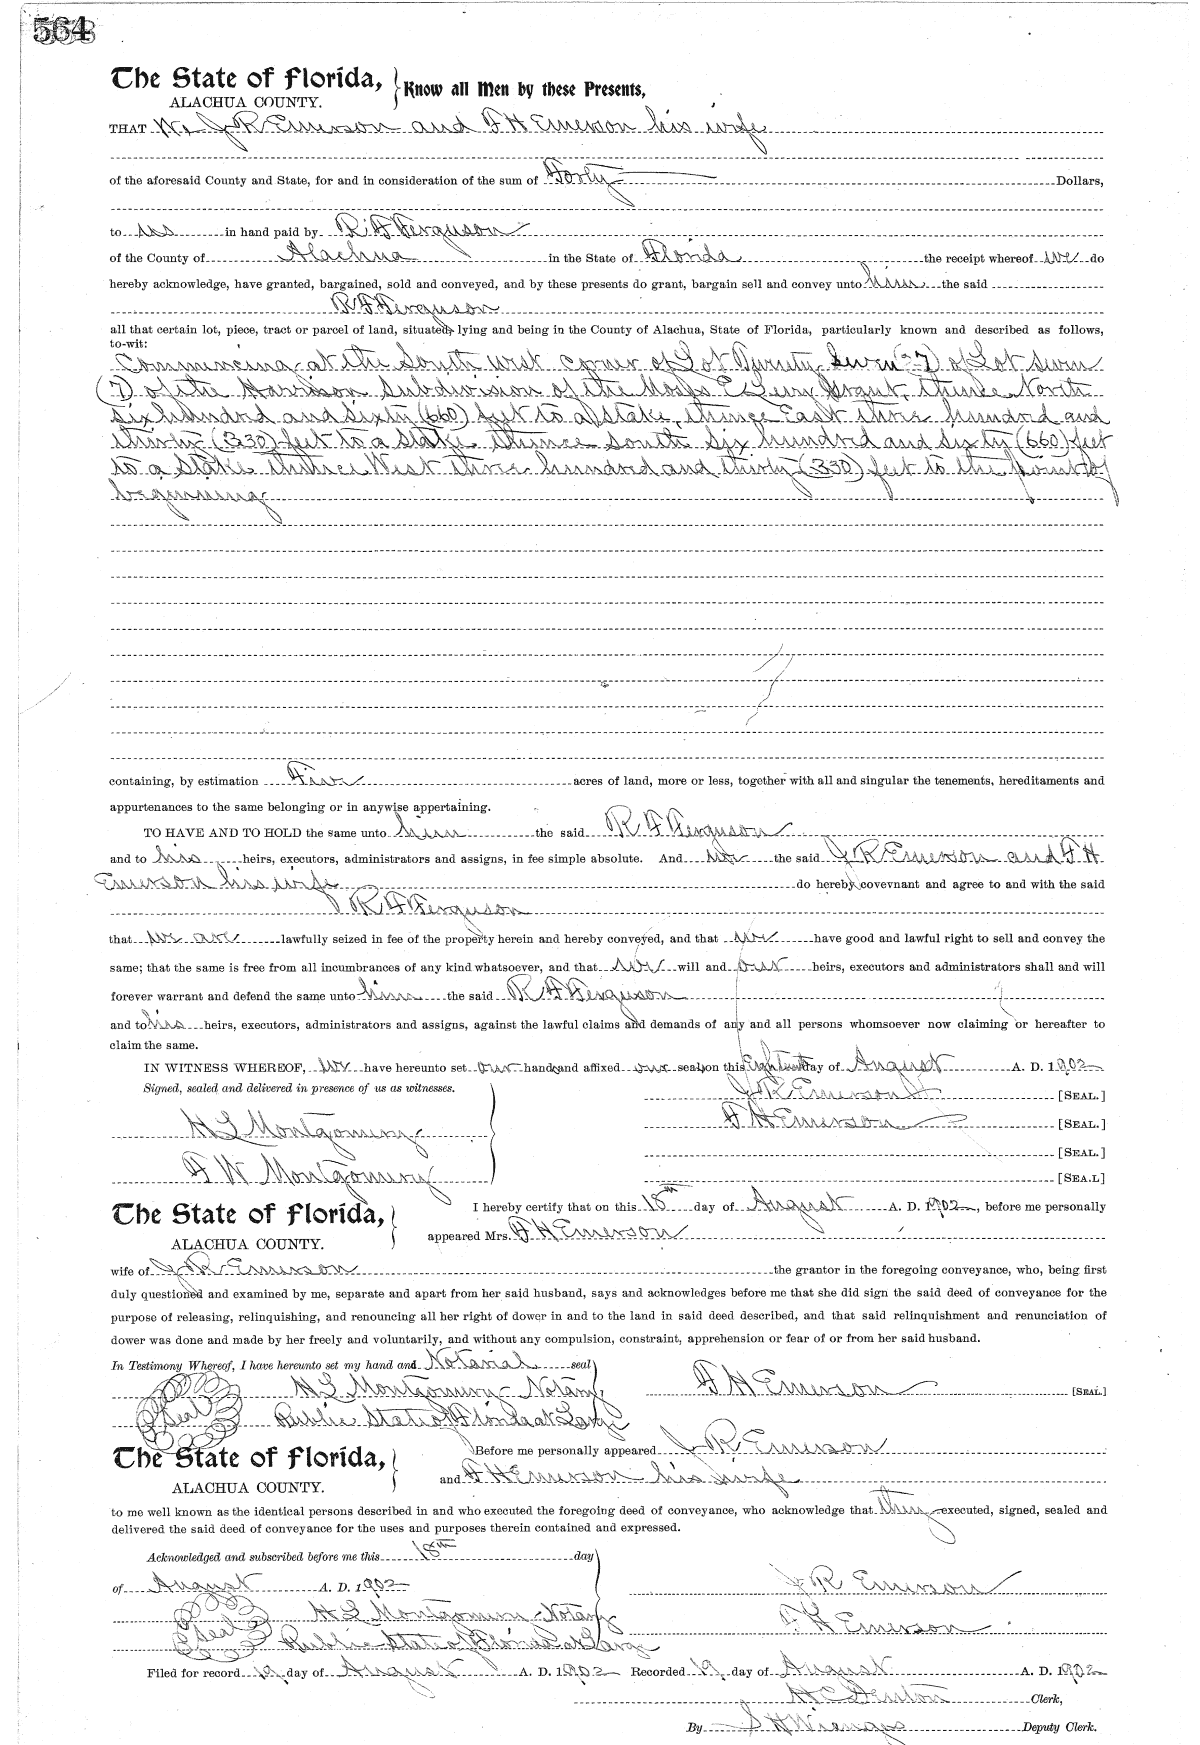 564
The State of Florida,
ALACHUA COUNTY.
Know all Men by these Presents,
THAT We J R Emerson and F H Emerson his wife
of the aforesaid County and State, for and in consideration of the sum of Forty Dollars,
to us in hand paid by R F Ferguson
of the County of Alachua in the State of Florida the receipt whereof we do
hereby acknowledge, have granted, bargained, sold and conveyed, and by these presents do grant, bargain sell and convey unto him the said
R F Ferguson
all that certain lot, piece, tract or parcel of land, situated, lying and being in the County of Alachua, State of Florida, particularly known and described as follows,
to-wit:
Commencing at the South west corner of Lot Twenty Seven (27) of Lot Seven
(7) of the Harrison Subdivision of the Moses E Levy Grant, thence North
Six hundred and Sixty (660) feet to a stake, thence East three hundred and
thirty (330) feet to a stake thence South Six hundred and Sixty (660) feet
to a stake thence West three hundred and thirty (330) feet to the point of
beginning.
containing, by estimation Five acres of land, more or less, together with all and singular the tenements, hereditaments and
appurtenances to the same belonging or in anywise appertaining.
TO HAVE AND TO HOLD the same unto him the said R F Ferguson
and to his heirs, executors, administrators and assigns, in fee simple absolute. And we the said J R Emerson and F H
Emerson his wife do hereby covevnant and agree to and with the said
R F Ferguson
that we are lawfully seized in fee of the property herein and hereby conveyed, and that we have good and lawful right to sell and convey the
same; that the same is free from all incumbrances of any kind whatsoever, and that we will and our heirs, executors and administrators shall and will
forever warrant and defend the same unto him the said R F Ferguson
and to his heirs, executors, administrators and assigns, against the lawful claims and demands of any and all persons whomsoever now claiming or hereafter to
claim the same.
IN WITNESS WHEREOF, we have hereunto set our hands and affixed our seals on this Eighteenth day of August A. D. 1902
Signed, sealed and delivered in presence of us as witnesses.
J R Emerson [SEAL.]
H L Montgomery
F H Emerson [SEAL.]
[SEAL.]
F W Montgomery
[SEA.L]
The State of Florida,
ALACHUA COUNTY.
I hereby certify that on this 18th day of August A. D. 1902, before me personally
appeared Mrs. F H Emerson
wife of J R Emerson the grantor in the foregoing conveyance, who, being first
duly questioned and examined by me, separate and apart from her said husband, says and acknowledges before me that she did sign the said deed of conveyance for the
purpose of releasing, relinquishing, and renouncing all her right of dower in and to the land in said deed described, and that said relinquishment and renunciation of
dower was done and made by her freely and voluntarily, and without any compulsion, constraint, apprehension or fear of or from her said husband.
In Testimony Whereof, I have hereunto set my hand and Notarial seal
H L Montgomery Notary F H Emerson [SEAL.]
Seal Public State of Florida at Large
The State of Florida,
ALACHUA COUNTY.
Before me personally appeared J R Emerson
and F H Emerson his wife
to me well known as the identical persons described in and who executed the foregoing deed of conveyance, who acknowledge that they executed, signed, sealed and
delivered the said deed of conveyance for the uses and purposes therein contained and expressed.
Acknowledged and subscribed before me this 18th day
of August A. D. 1902 J R Emerson
H L Montgomery Notary F H Emerson
Seal Public State of Florida at Large
Filed for record 19 day of August A. D. 1902 Recorded 19 day of August A. D. 1902
H C Denton Clerk,
By S H Wienges Deputy Clerk.